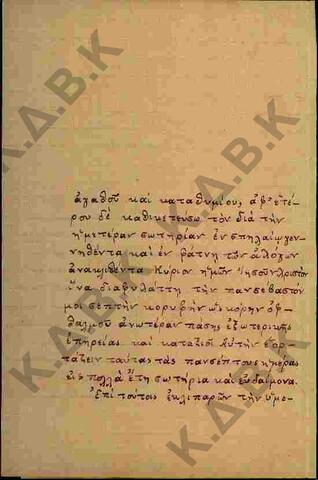 ἀγαθοῦ καὶ καταθυμίου, ἀφ' ἑτέ-
ρου δὲ καθικετεύσω τὸν διὰ τὴν
ἡμετέραν σωτηρίαν ἐν σπηλαίῳ γεν-
νηθέντα καὶ ἐν φάτνῃ τῶν ἀλόγων
ἀνακλιθέντα Κύριον ἡμῶν Ἰησοῦν Χριστὸν
ἵνα διαφυλάττῃ τὴν πανσέβαστόν
μοι σεπτὴν κορυφὴν ὡς κόρην ὀφ-
θαλμοῦ ἀνωτέραν πάσης ἐξωτερικῆς
ἐπηρείας καὶ καταξιοῖ Αὐτὴν ἑορ-
τάζειν ταύτας τὰς πανσέπτους ἡμέρας
εἰς πολλὰ ἔτη σωτήρια καὶ εὐδαίμονα.
Ἐπὶ τούτοις ἐκλιπαρῶν τὴν ὑμε-
Κ.Δ.Β.Κ
Κ.Δ.Β.Κ
Κ.Δ.Β.Κ